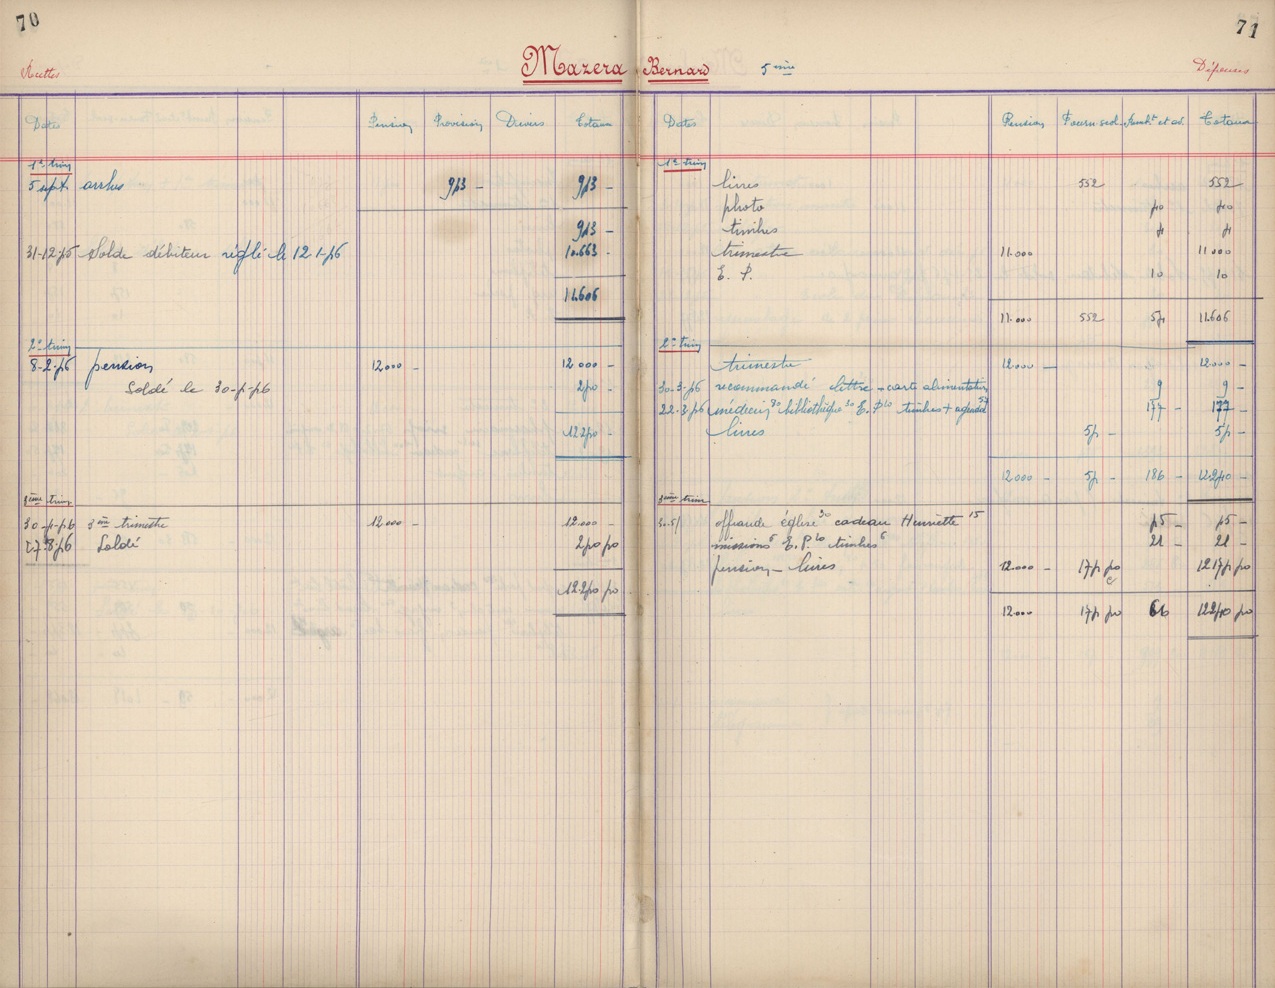 70
71
Recettes
Mazera Bernard 5ème
Dépenses
Dates Pension Provision Divers Totaux
Dates Pension Fourn. scol. Totaux
1er trim
5 sept. arrhes 943 - 943 -
943 -
31-12-45 Solde débiteur réglé le 12-1-46 10.663 -
11.606
2e trim
8-2-46 pension 12000 - 12000 -
Soldé le 30-4-46 240 -
12240 -
3ème trim
30-4-46 3ème trimestre 12000 - 12.000 -
27.8.46 Soldé 240 40
12.240 40
1er trim
livres 552 552
photo 40 40
timbres 4 4
trimestre 11.000 11000
E. P. 10 10
11.000 552 54 11.606
2e trim
trimestre 12000 - 12000 -
30-3-46 recommandé lettre + carte alimentation 9 9 -
22-3-46 médecin 80 bibliothèque 30 E.P 10 timbres + agenda 57 177 - 177 -
livres 54 - 54 -
12000 - 54 - 186 - 12240 -
3ème trim
30.5/ offrande église 30 cadeau Henriette 15 45 - 45 -
missions 5 E.P. 10 timbres 6 21 - 21 -
pension - livres 12.000 - 174 40 12174 40
12000 174 40 66 12240 40